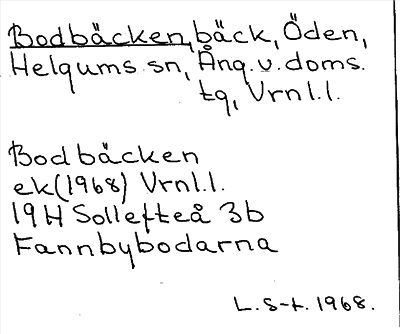 Bodbäcken, bäck, Öden,
Helgums sn, Ång. v. doms.
tg, Vrnl.l.
Bodbäcken
ek (1968) Vrnl.l.
19H Sollefteå 3b
Fannbybodarna
L. S-t. 1968.